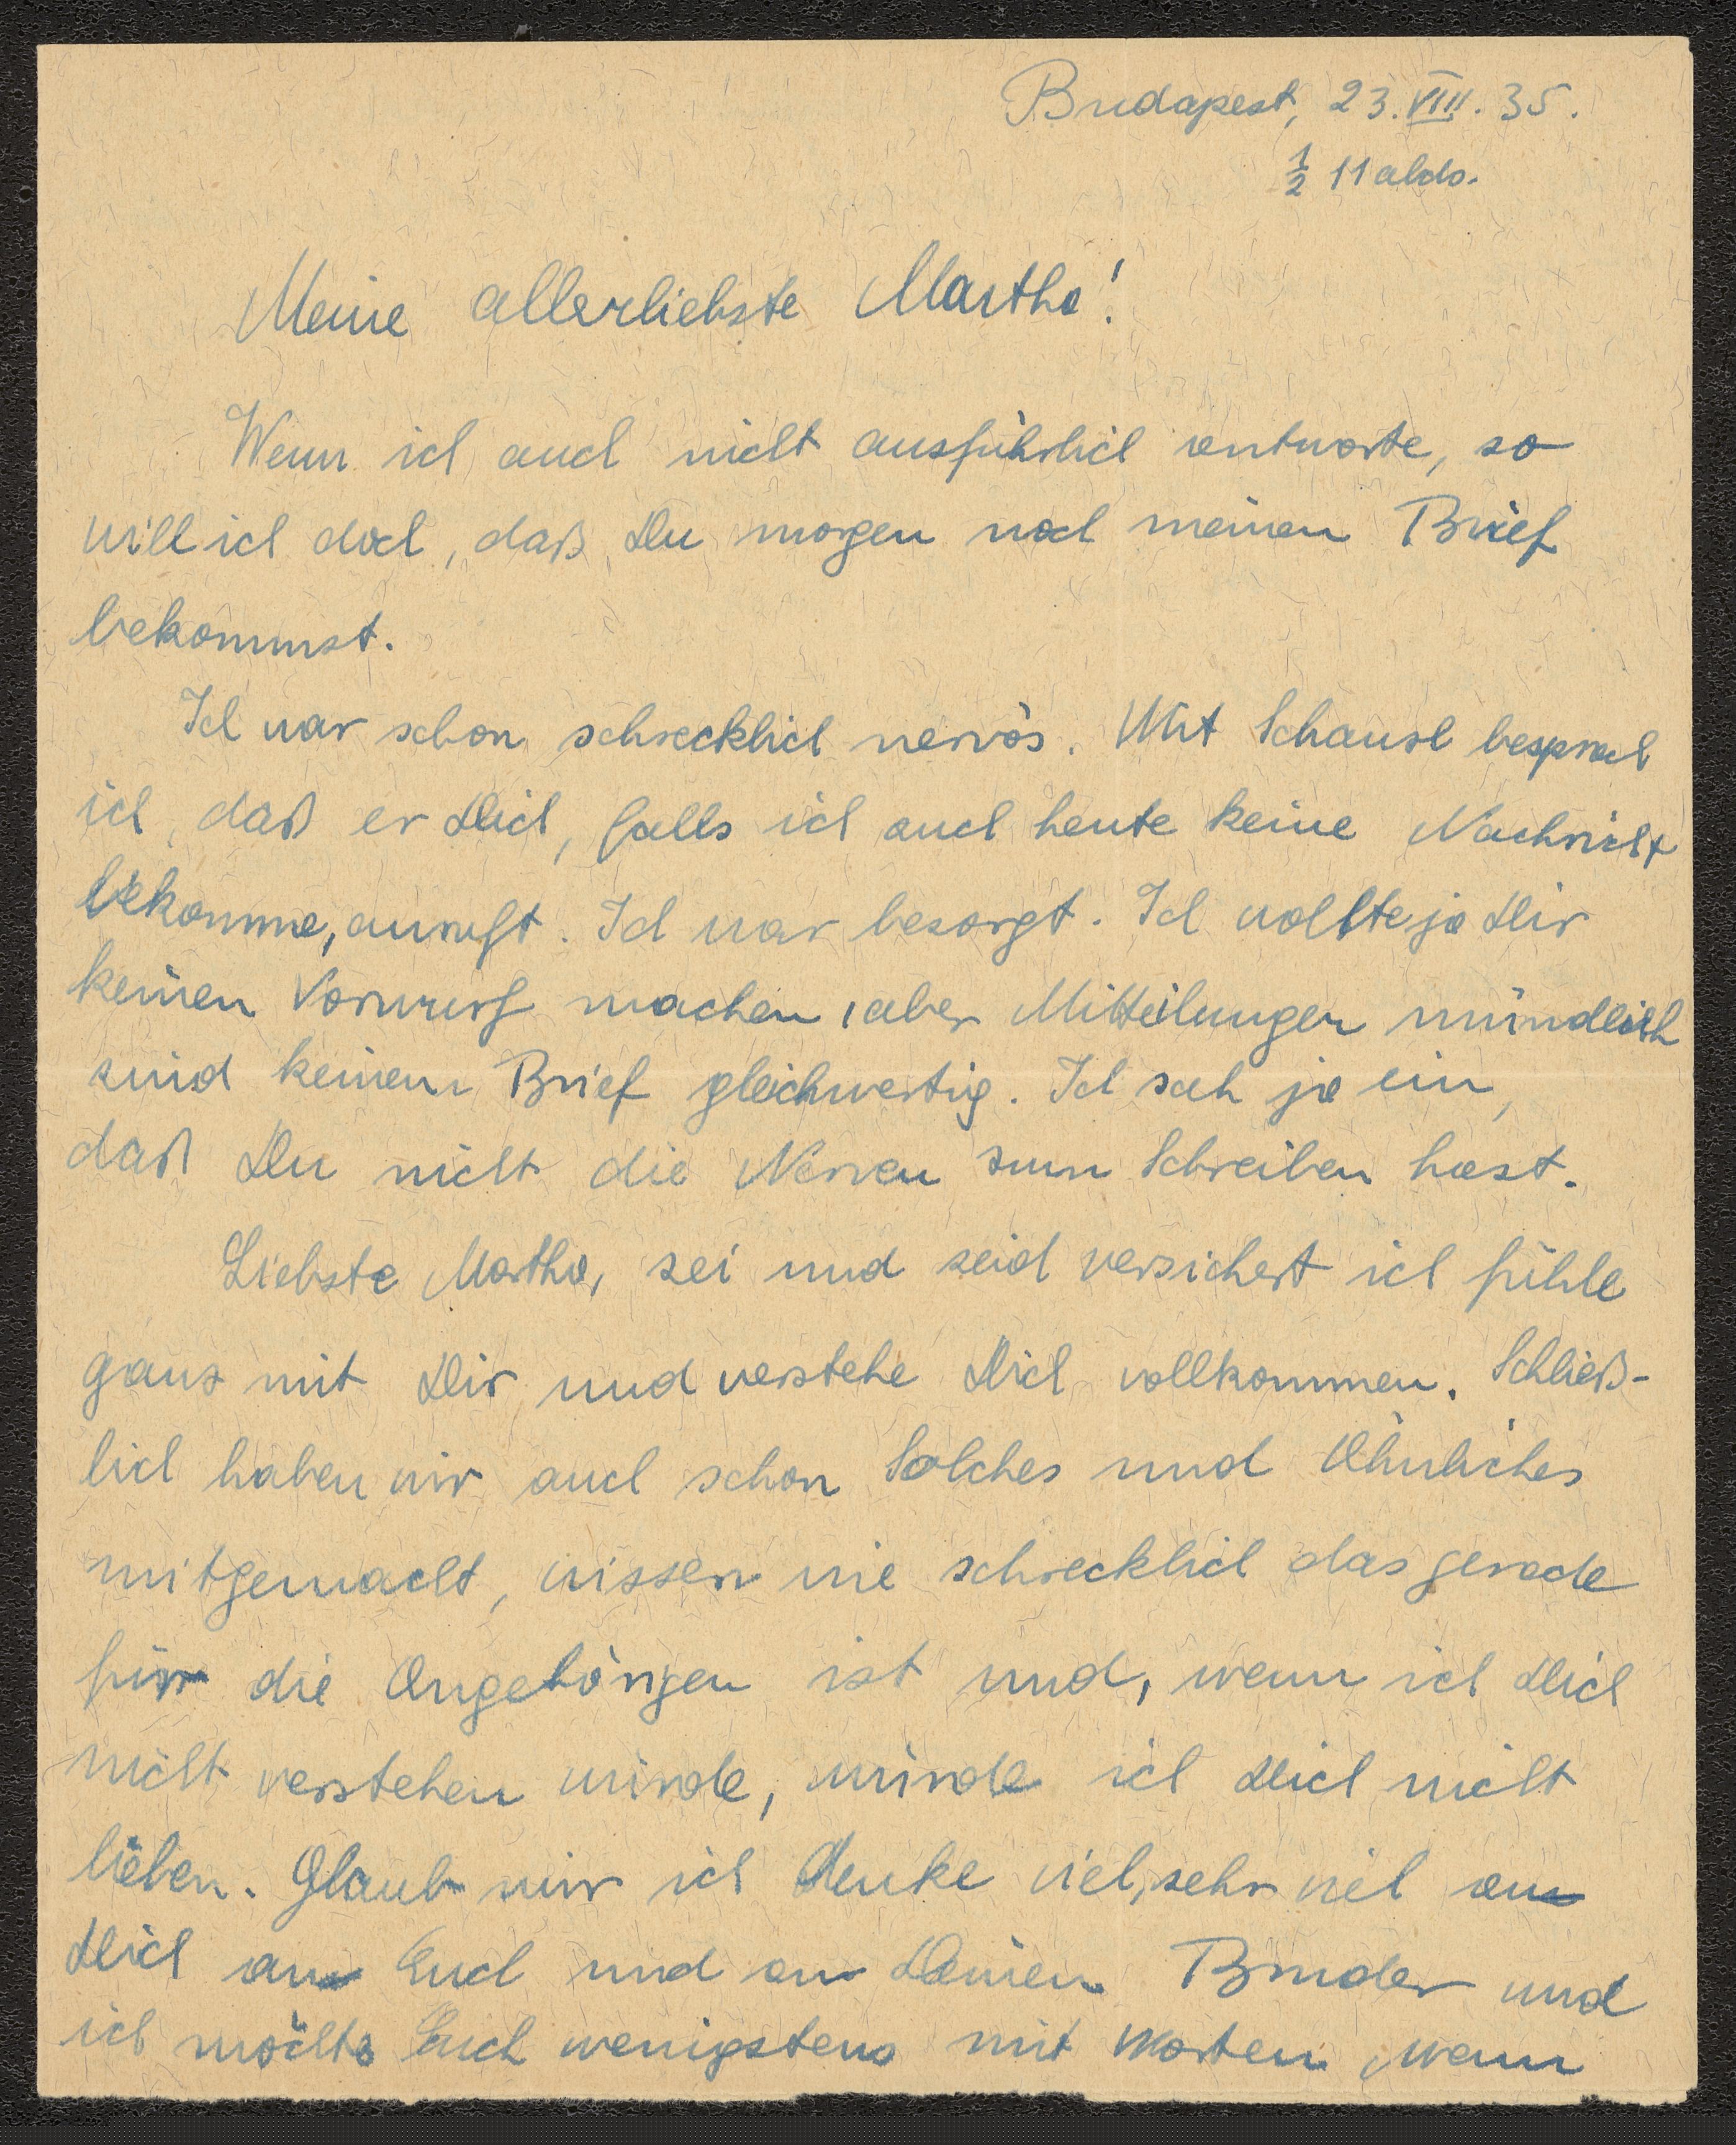 Budapest, 23. VIII. 35.
½ 11 abds.
Meine allerliebste Martha!
Wenn ich auch nicht ausführlich antworte, so
will ich doch, daß Du morgen noch meinen Brief
bekommst.
Ich war schon schrecklich nervös. Mit Schausl besprach
ich, daß er Dich, falls ich auch heute keine Nachricht
bekomme, anruft. Ich war besorgt. Ich wollte ja Dir
keinen Vorwurf machen, aber Mitteilungen mündlich
sind keinem Brief gleichwertig. Ich sah ja ein,
daß Du nicht die Nerven zum Schreiben hast.
Liebste Martha, sei und seid versichert ich fühle
ganz mit Dir und verstehe Dich vollkommen. Schließ-
lich haben wir auch schon Solches und Ähnliches
mitgemacht, wissen wie schrecklich das gerade
für die Angehörigen ist und, wenn ich Dich
nicht verstehen würde, würde ich Dich nicht
lieben. Glaub mir ich denke viel, sehr viel an
Dich an Euch und an Deinen Bruder und
ich möchte Euch wenigstens mit Worten, wenn